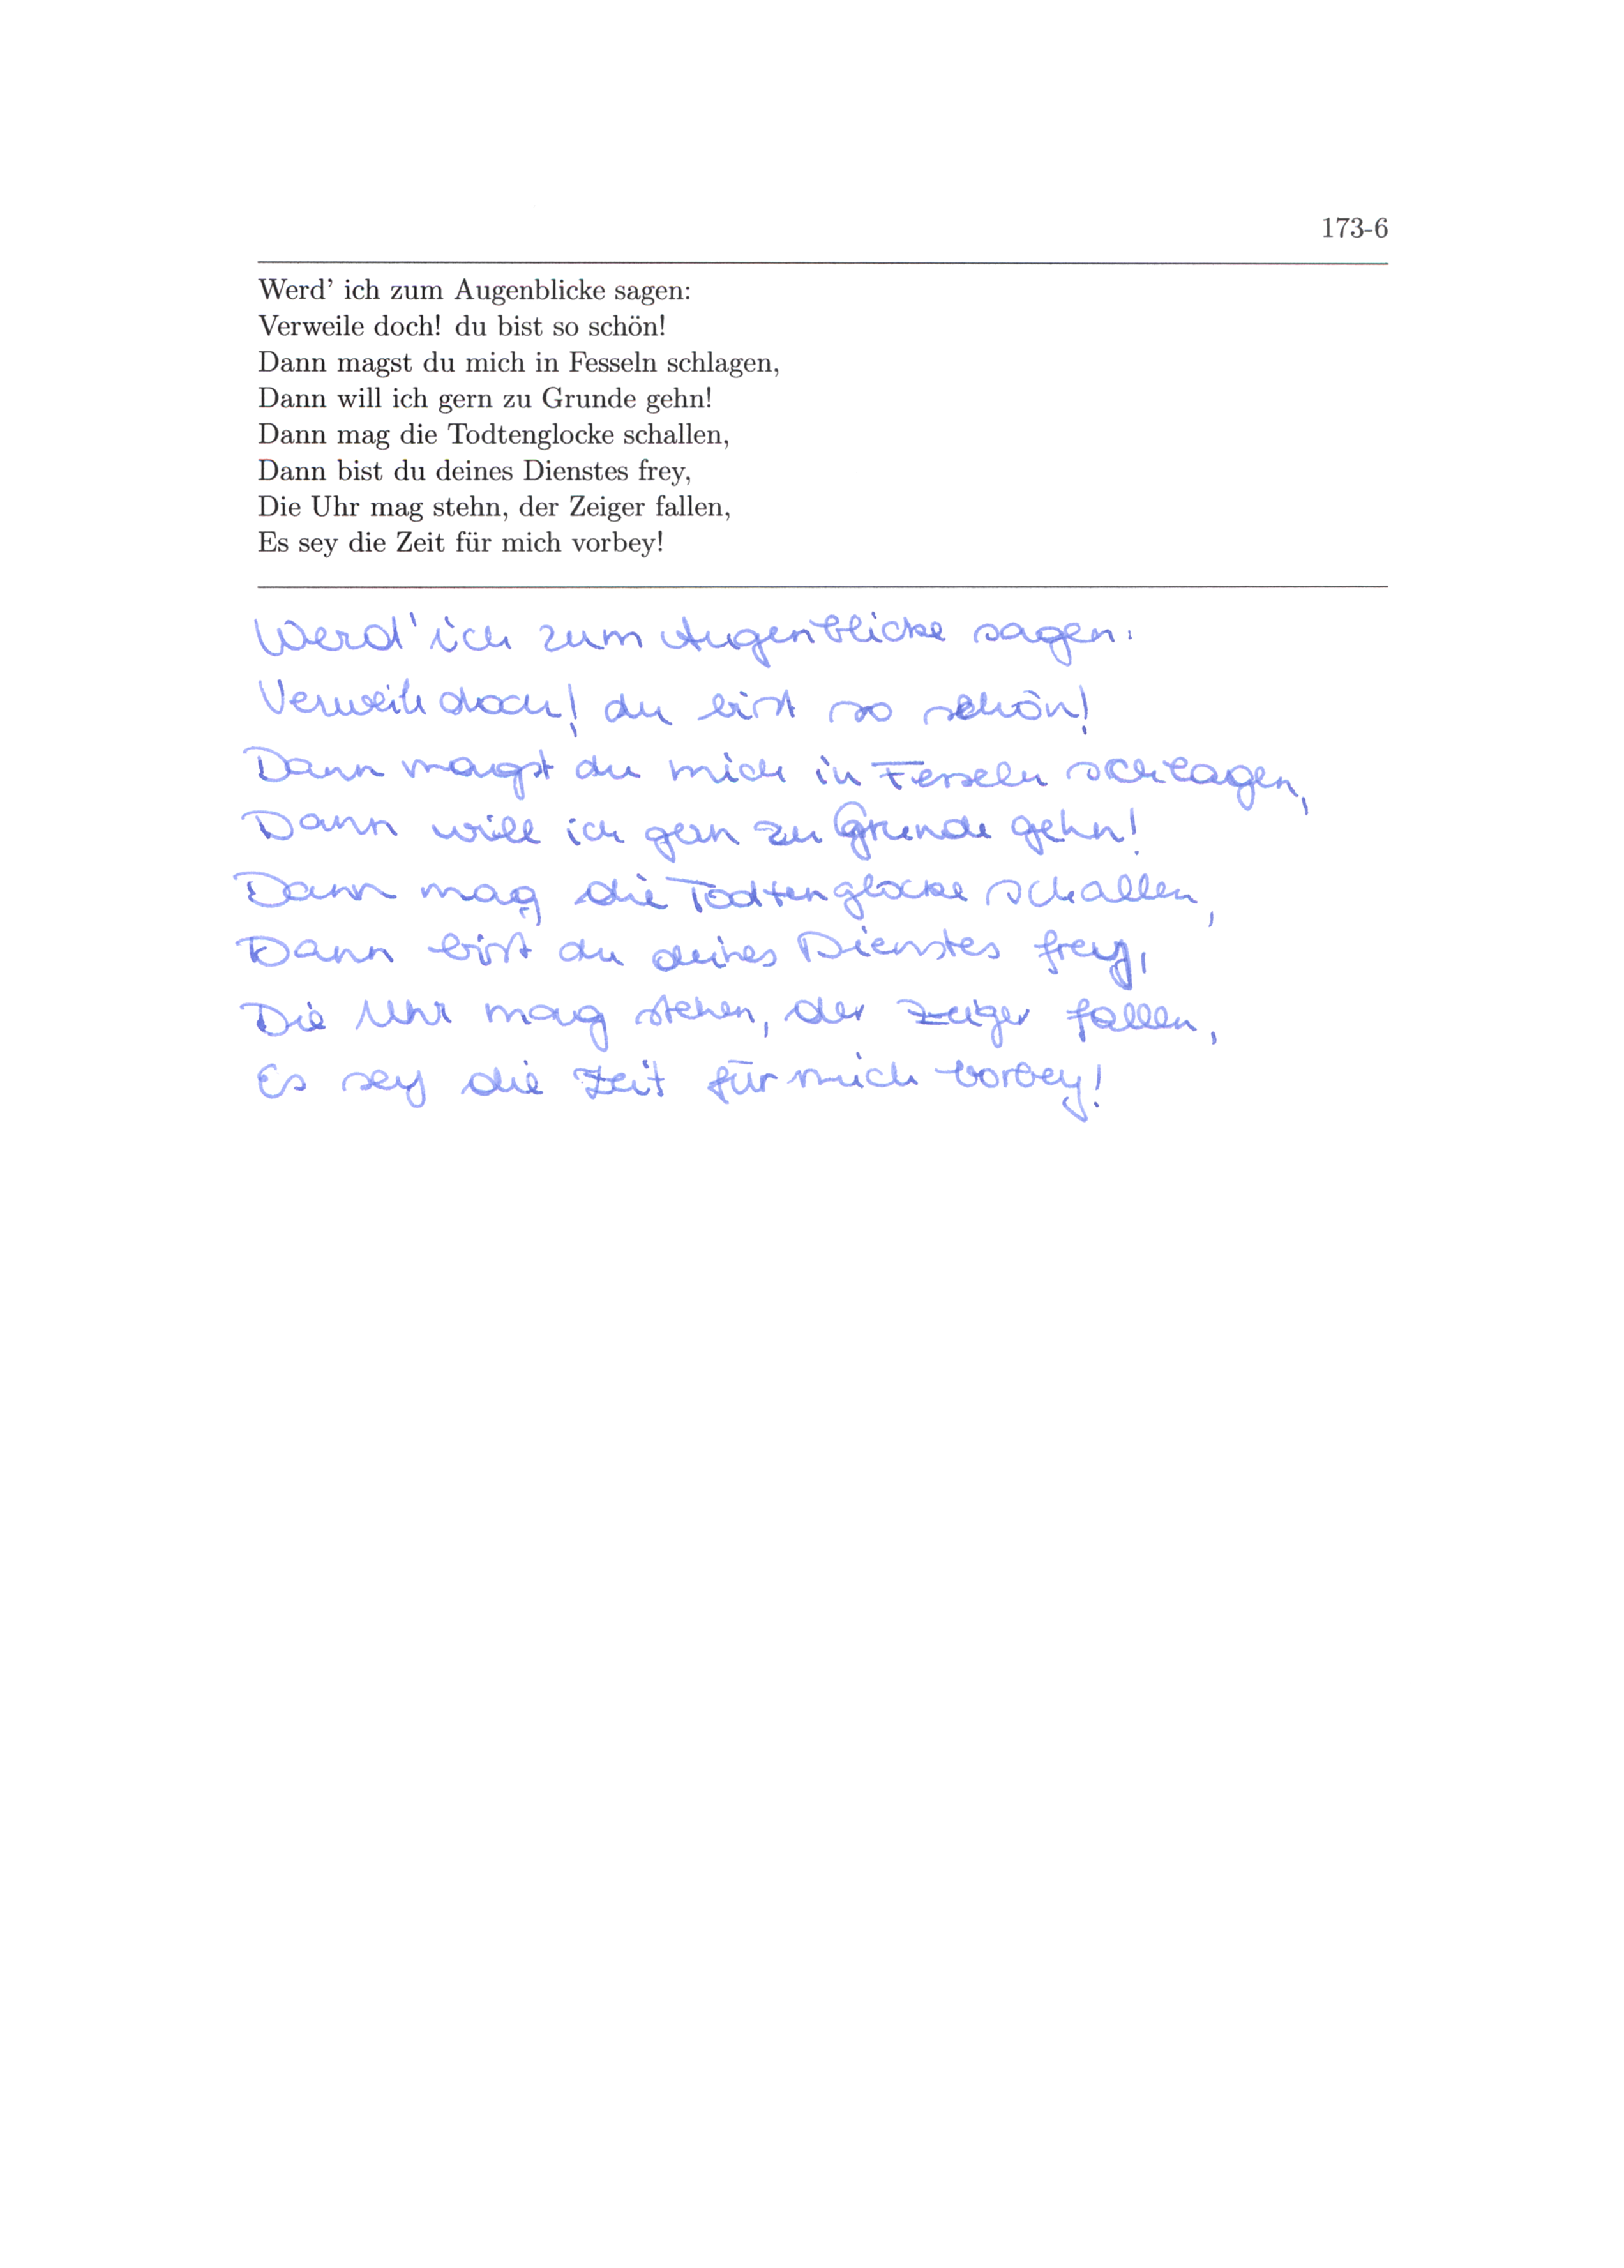 173-6
Werd' ich zum Augenblicke sagen:
Verweile doch! du bist so schön!
Dann magst du mich in Fesseln schlagen,
Dann will ich gern zu Grunde gehn!
Dann mag die Todtenglocke schallen,
Dann bist du deines Dienstes frey,
Die Uhr mag stehn, der Zeiger fallen,
Es sey die Zeit für mich vorbey!
Werd' ich zum Augenblicke sagen:
Verweile doch! du bist so schön!
Dann magst du mich in Fesseln schlagen,
Dann will ich gern zu Grunde gehn!
Dann mag die Todtenglocke schallen,
Dann bist du deines Dienstes frey,
Die Uhr mag stehen, der Zeiger fallen,
Es sey die Zeit für mich vorbey!